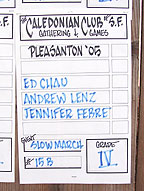 THE CALEDONIAN CLUB OF S.F.
GATHERING & GAMES
PLEASANTON '05
ED CHAU
ANDREW LENZ
JENNIFER FEBRET
EVENT
SLOW MARCH
GRADE
IV
# 15 B